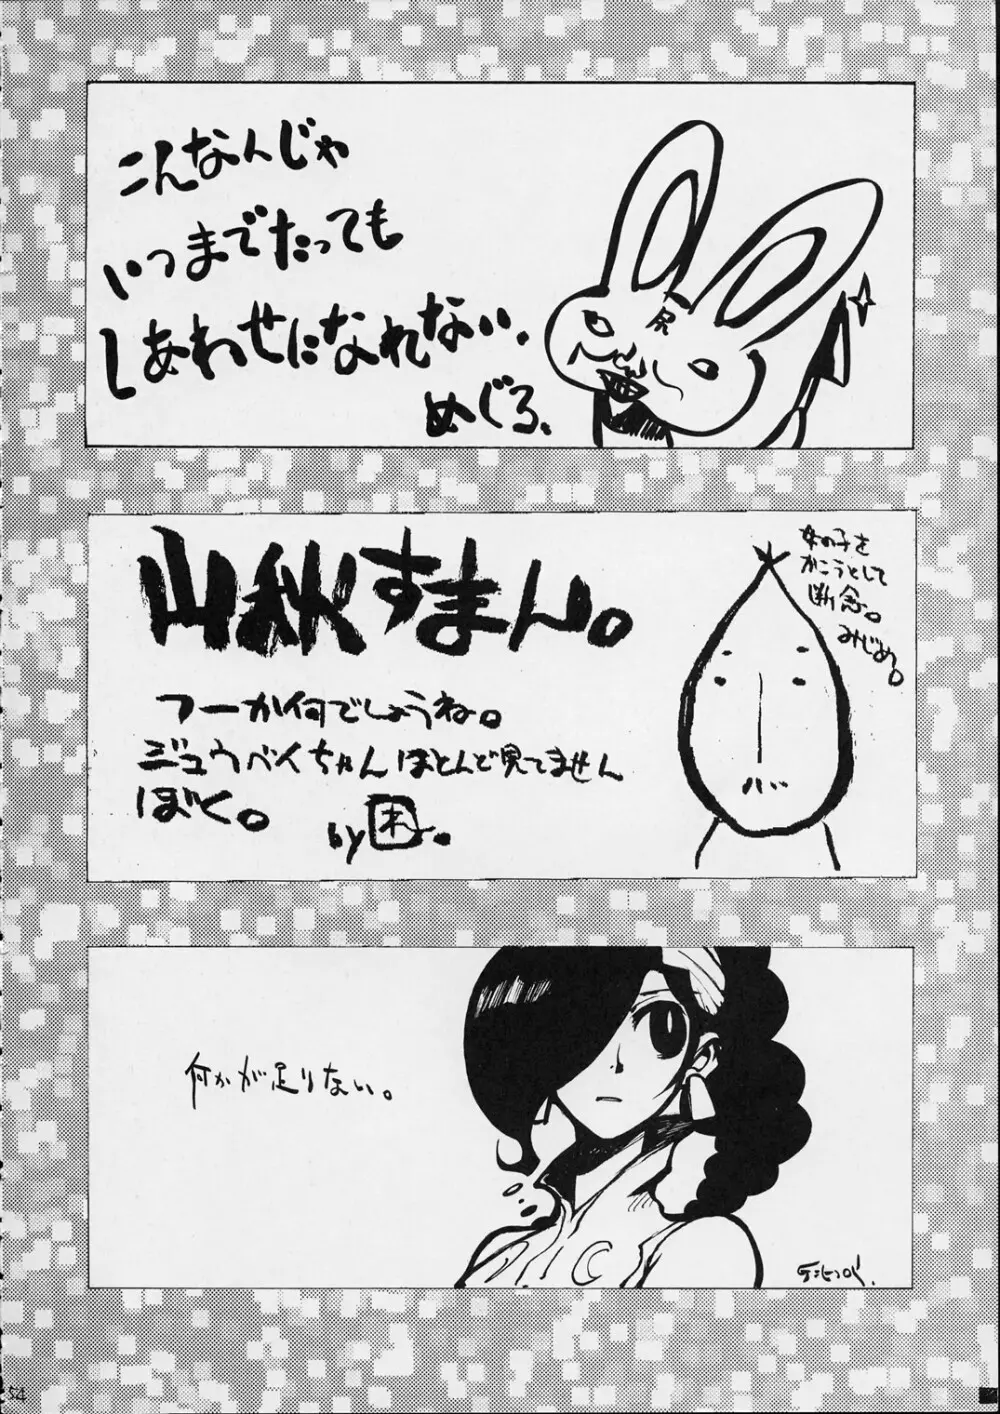 こんなんじゃ
いつまでたっても
しあわせになれない、
めぐる、
尻
山秋すまん。
フーか何でしょうね。
ジュウベイちゃんほとんど見てません
ぼく。
by困。
女の子を
かこうとして
断念。
みじめ。
何かが足りない。
54